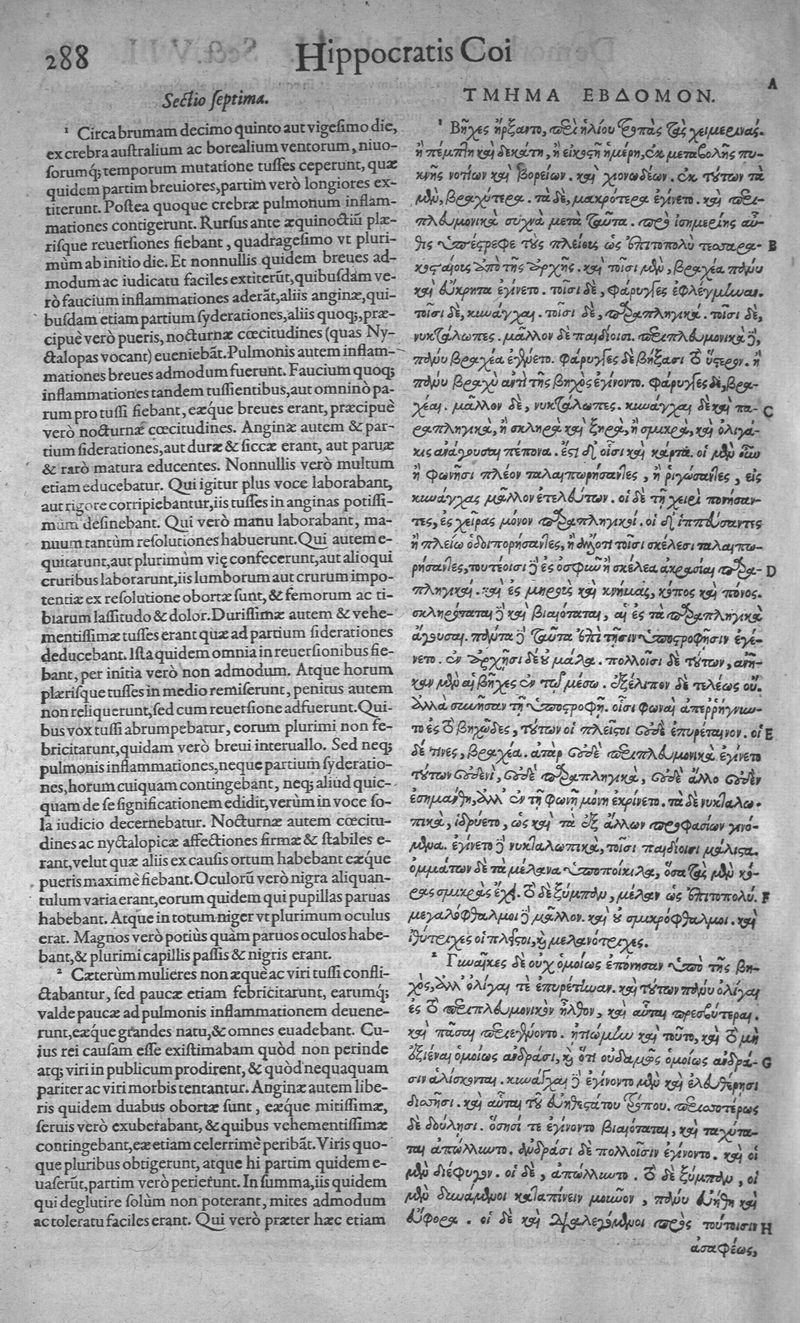 288
Hippocratis Coi
Sectio septima.
¹ Circa brumam decimo quinto aut vigesimo die,
ex crebra australium ac borealium ventorum, niuo-
sorumq́; temporum mutatione tusses ceperunt, quæ
quidem partim breuiores, partim verò longiores ex-
titerunt. Postea quoque crebræ pulmonum inflam-
mationes contigerunt. Rursus ante æquinoctiũ plæ-
risque reuersiones fiebant, quadragesimo vt pluri-
mùm ab initio die. Et nonnullis quidem breues ad-
modum ac iudicatu faciles extiterũt, quibusdam ve-
rò faucium inflammationes aderãt, aliis anginæ, qui-
busdam etiam partium syderationes, aliis quoq;, præ-
cipuè verò pueris, nocturnæ cœcitudines (quas Ny-
ctalopas vocant) eueniebãt. Pulmonis autem inflam-
mationes breues admodum fuerunt. Faucium quoq;
inflammationes tandem tussientibus, aut omninò pa-
rum pro tussi fiebant, eæque breues erant, præcipuè
verò nocturnæ cœcitudines. Anginæ autem & par-
tium siderationes, aut duræ & siccæ erant, aut paruæ
& rarò matura educentes. Nonnullis verò multum
etiam educebatur. Qui igitur plus voce laborabant,
aut rigore corripiebantur, iis tusses in anginas potissi-
mùm desinebant. Qui verò manu laborabant, ma-
nuum tantùm resolutiones habuerunt. Qui autem e-
quitarunt, aut plurimùm vię confecerunt, aut alioqui
cruribus laborarunt, iis lumborum aut crurum impo-
tentiæ ex resolutione obortæ sũt, & femorum ac ti-
biarum lassitudo & dolor. Durissimæ autem & vehe-
mentissimæ tusses erant quæ ad partium siderationes
deducebant. Ista quidem omnia in reuersionibus fie-
bant, per initia verò non admodum. Atque horum
plærisque tusses in medio remiserunt, penitus autem
non reliquerunt, sed cum reuersione adfuerunt. Qui-
bus vox tussi abrumpebatur, eorum plurimi non fe-
bricitarunt, quidam verò breui interuallo. Sed neq;
pulmonis inflammationes, neque partium syderatio-
nes, horum cuiquam contingebãnt, neq; aliud quic-
quam de se significationem edidit, verùm in voce so-
la iudicio decernebatur. Nocturnæ autem cœcitu-
dines ac nyctalopicæ affectiones firmæ & stabiles e-
rant, velut quæ aliis ex causis ortum habebant eæq́ue
pueris maximè fiebant. Oculorũ verò nigra aliquan-
tulum varia erant, eorum quidem qui pupillas paruas
habebant. Atque in totum niger vt plurimum oculus
erat. Magnos verò potiùs quàm paruos oculos habe-
bant, & plurimi capillis passis & nigris erant.
² Cæterùm mulieres non æquè ac viri tussi confli-
ctabantur, sed paucæ etiam febricitarunt, earumq́;
valde paucæ ad pulmonis inflammationem deuene-
runt, eæq́ue grandes natu, & omnes euadebant. Cu-
ius rei causam esse existimabam quòd non perinde
atq; viri in publicum prodirent, & quòd nequaquam
pariter ac viri morbis tentantur. Anginæ autem libe-
ris quidem duabus obortæ sunt, eæque mitissimæ,
seruis verò exuberabant, & quibus vehementissimæ
contingebant, eæ etiam celerrimè peribãt. Viris quo-
que pluribus obtigerunt, atque hi partim quidem e-
uaserũt, partim verò perierunt. In summa, iis quidem
qui deglutire solùm non poterant, mites admodum
ac toleratu faciles erant. Qui verò præter hæc etiam
ΤΜΗΜΑ ΕΒΔΟΜΟΝ.
A
¹ Βῆχες ἤρξαντο, περὶ ἡλίου τροπὰς τὰς χειμερινάς.
ἢ πέμπτῃ καὶ δεκάτῃ, ἢ εἰκοστῇ ἡμέρῃ, ἐκ μεταβολῆς πυ-
κνῆς νοτίων καὶ βορείων. καὶ χιονωδέων. ἐκ τούτων τὰ
μὲν, βραχύτερα. τὰ δὲ, μακρότερα ἐγίνετο. καὶ περι-
πλευμονικὰ συχνὰ μετὰ ταῦτα. πρὸ ἰσημερίης αὖ-
θις ὑπέστρεφε τοὺς πλείστους ὡς ἐπιτοπολὺ τεσσαρα- B
κοσταίους ἀπὸ τῆς ἀρχῆς. καὶ τοῖσι μὲν, βραχέα πάνυ
καὶ εὔκρητα ἐγίνετο. τοῖσι δὲ, φάρυγγες ἐφλέγμῃναν.
τοῖσι δὲ, κυνάγχαι. τοῖσι δὲ, παραπληγικά. τοῖσι δὲ,
νυκτάλωπες. μᾶλλον δὲ παιδίοισι. περιπλευμονικὰ δὲ,
πάνυ βραχέα ἐγένετο. φάρυγγες δὲ βήξασι τὸ ὕστερον. ἢ
πάνυ βραχὺ ἀντὶ τῆς βηχὸς ἐγίνοντο. φάρυγγες δὲ, βρα-
χέαι. μᾶλλον δὲ, νυκτάλωπες. κυνάγχαι δὲ καὶ πα- C
ραπληγικὰ, ἢ σκληρὰ καὶ ξηρὰ, ἢ σμικρὰ, καὶ ὀλιγά-
κις ἀνάγουσαι πέπονα. ἔστι δ' οἷσι καὶ κάρτα. οἱ μὲν οὖν
ἢ φωνῇσι πλέον ταλαιπωρήσαντες, ἢ ῥιγώσαντες, εἰς
κυνάγχας μᾶλλον ἐτελεύτων. οἱ δὲ τῇ χειρὶ πονήσαν-
τες, ἐς χεῖρας μόνον παραπληγικοί. οἱ δ' ἱππεύσαντες
ἢ πλείω ὁδοιπορήσαντες, ἢ ἄλλο τι τοῖσι σκέλεσι ταλαιπω-
ρήσαντες, τουτέοισι δὲ ἐς ὀσφὺν ἢ σκέλεα ἀκρασίαι παρα- D
πληγικαί. καὶ ἐς μηροὺς καὶ κνήμας, κόπος καὶ πόνος.
σκληρόταται δὲ καὶ βιαιόταται, αἱ ἐς τὰ παραπληγικὰ
ἄγουσαι. πάντα δὲ ταῦτα ἐπὶ τῇσιν ὑποστροφῇσιν ἐγέ-
νετο. ἐν ἀρχῇσι δὲ οὐ μάλα. πολλοῖσι δὲ τούτων, ἀνῆ-
καν μὲν αἱ βῆχες ἐν τῷ μέσῳ. ἐξέλιπον δὲ τελέως οὔ.
ἀλλὰ συνῆσαν τῇ ὑποστροφῇ. οἷσι φωναὶ ἀπερρήγνυν-
το ἐς τὸ βηχῶδες, τούτων οἱ πλεῖστοι οὐδὲ ἐπυρέταινον. οἱ E
δέ τινες, βραχέα. ἀτὰρ οὐδὲ περιπλευμονικὰ ἐγίνετο
τούτων οὐδενὶ, οὐδὲ παραπληγικὰ, οὐδὲ ἄλλο οὐδὲν
ἐσημάνθη, ἀλλ' ἐν τῇ φωνῇ μόνῃ ἐκρίνετο. τὰ δὲ νυκταλω-
πικὰ, ἱδρύετο, ὡς καὶ τὰ ἐξ ἄλλων προφασίων γινό-
μενα. ἐγίνετο δὲ νυκταλωπικὰ, τοῖσι παιδίοισι μάλιστα.
ὀμμάτων δὲ τὰ μέλανα ὑποποίκιλα, ὅσα τὰς μὲν κό-
ρας σμικρὰς ἔχει. τὸ δὲ ξύμπαν, μέλαν ὡς ἐπιτοπολύ. F
μεγαλόφθαλμοι δὲ μᾶλλον. καὶ οὐ σμικρόφθαλμοι. καὶ
ἰθύτριχες οἱ πλεῖστοι, καὶ μελανότριχες.
² Γυναῖκες δὲ οὐχ ὁμοίως ἐπόνησαν ὑπὸ τῆς βη-
χὸς, ἀλλ' ὀλίγαι τε ἐπυρέτηναν. καὶ τούτων πάνυ ὀλίγαι
ἐς τὸ περιπλευμονικὸν ἦλθον, καὶ αὗται πρεσβύτεραι.
καὶ πᾶσαι περιεγένοντο. ᾐτιώμην καὶ τοῦτο, καὶ τὸ μὴ
ἐξιέναι ὁμοίως ἀνδράσι, καὶ ὅτι οὐδαμῶς ὁμοίως ἀνδρά- G
σιν ἁλίσκονται. κυνάγχαι δὲ ἐγίνοντο μὲν καὶ ἐλευθέρῃσι
δισσῇσι. καὶ αὗται τοῦ εὐηθεστάτου τρόπου. περισσοτέρως
δὲ δούλῃσι. ὅσῃσί τε ἐγίνοντο βιαιόταται, καὶ τάχιστα-
ται ἀπώλλυντο. ἀνδράσι δὲ πολλοῖσιν ἐγίνοντο. καὶ οἱ
μὲν διέφυγον. οἱ δὲ, ἀπώλλυντο. τὸ δὲ ξύμπαν, οἱ
μὲν δυνάμενοι καταπίνειν μοῦνον, πάνυ εὐήθη καὶ
εὔφορα. οἱ δὲ καὶ διαλεγόμενοι πρὸς τούτοισιν H
ἀσαφέως,